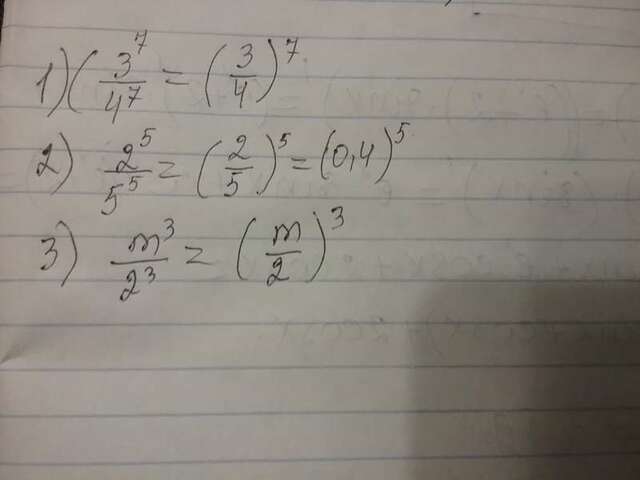 1) ( 3^7/4^7 = (3/4)^7
2) 2^5/5^5 = (2/5)^5 = (0,4)^5
3) m^3/2^3 = (m/2)^3